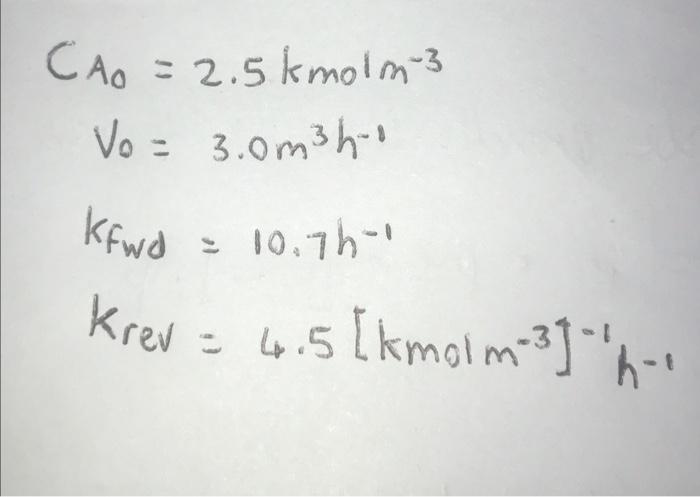 C_A0 = 2.5 kmol m⁻³
V₀ = 3.0 m³ h⁻¹
k_fwd = 10.7 h⁻¹
k_rev = 4.5 [kmol m⁻³]⁻¹ h⁻¹